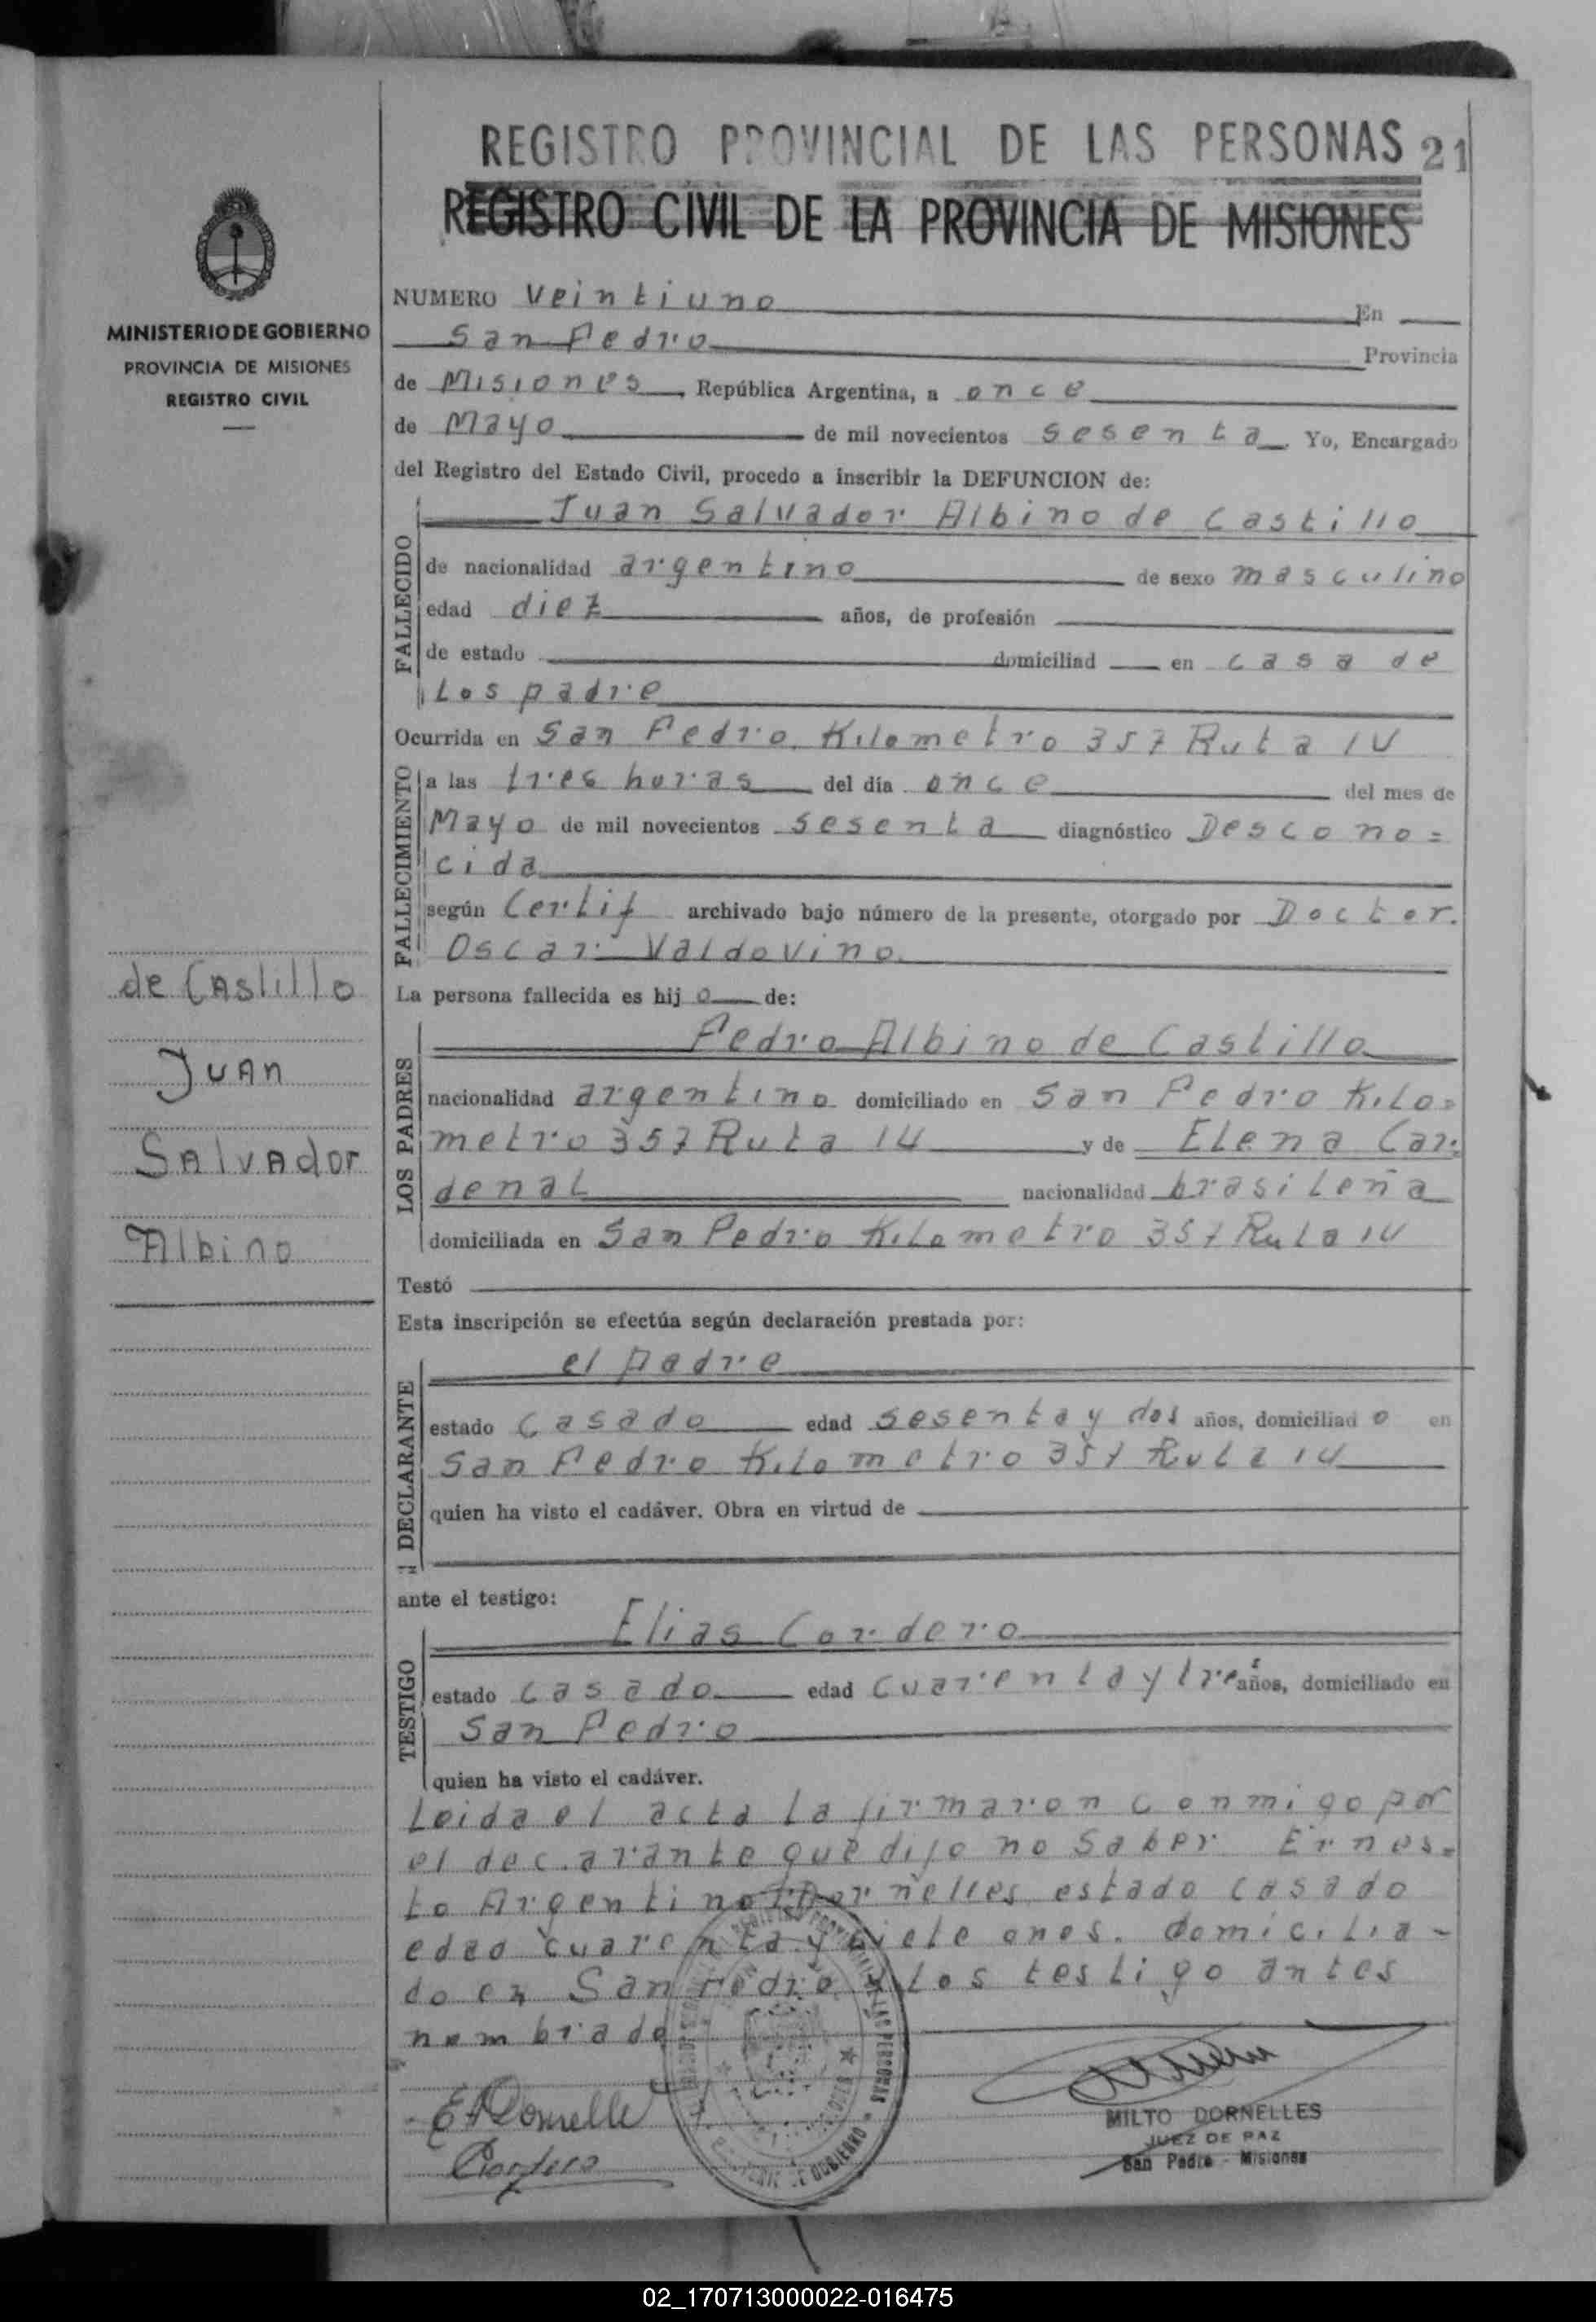 REGISTRO PROVINCIAL DE LAS PERSONAS 21
REGISTRO CIVIL DE LA PROVINCIA DE MISIONES
MINISTERIO DE GOBIERNO
PROVINCIA DE MISIONES
REGISTRO CIVIL
NUMERO Veintiuno En
San Pedro Provincia
de Misiones, República Argentina, a once
de Mayo de mil novecientos sesenta Yo, Encargado
del Registro del Estado Civil, procedo a inscribir la DEFUNCION de:
FALLECIDO
Juan Salvador Albino de Castillo
de nacionalidad argentino de sexo masculino
edad diez años, de profesión
de estado domiciliad en casa de
Los padre
Ocurrida en San Pedro Kilometro 357 Ruta 14
FALLECIMIENTO
a las tres horas del día once del mes de
Mayo de mil novecientos sesenta diagnóstico Descono=
cida
según Certif archivado bajo número de la presente, otorgado por Doctor.
Oscar Valdovino
La persona fallecida es hij o de:
LOS PADRES
Pedro Albino de Castillo
nacionalidad argentino domiciliado en San Pedro Kilo=
metro 357 Ruta 14 y de Elena Car:
denal nacionalidad brasileña
domiciliada en San Pedro Kilometro 357 Ruta 14
Testó
Esta inscripción se efectúa según declaración prestada por:
DECLARANTE
el padre
estado Casado edad sesenta y dos años, domiciliad o en
San Pedro Kilometro 357 Ruta 14
quien ha visto el cadáver. Obra en virtud de
ante el testigo:
TESTIGO
Elias Cordero
estado casado edad cuarenta y tres años, domiciliado en
San Pedro
quien ha visto el cadáver.
Leida el acta la firmaron conmigo por
el decarante que dijo no saber Ernes=
to Argentino Dorñelles estado casado
edad cuarenta y siete años. domicilia-
do en San Pedro y los testigo antes
nombrado
E A Dornelle
Cordero
MILTO DORNELLES
JUEZ DE PAZ
San Pedro - Misiones
de Castillo
Juan
Salvador
Albino
02_170713000022-016475